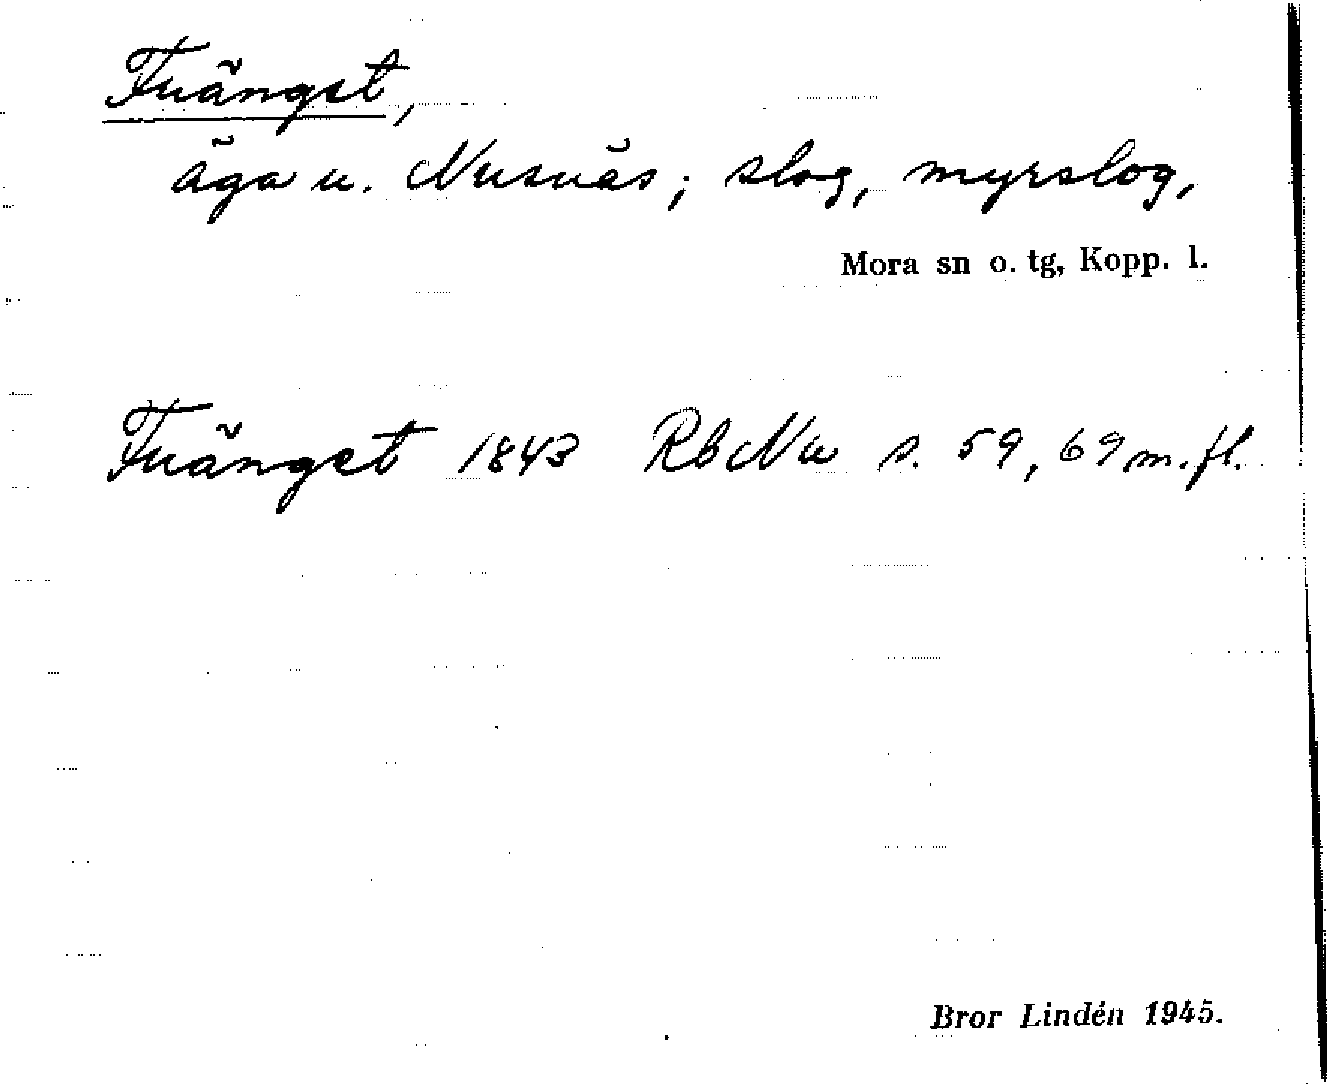 Fuängst,
äga u. Nusnäs; slog, myrslog,
Mora sn o. tg, Kopp. l.
Fuänget 1843 RbNu s. 59, 69 m.fl.
Bror Lindén 1945.